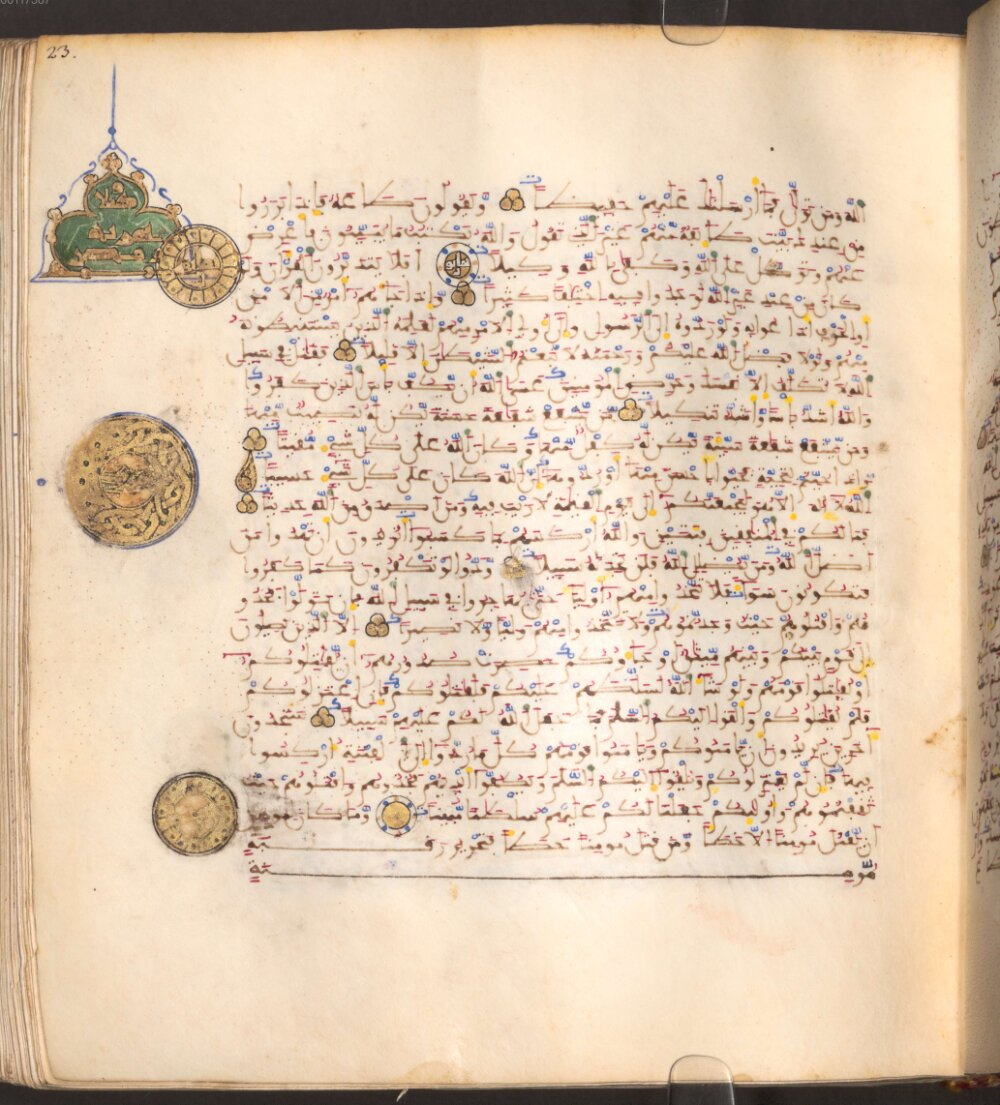 23.
الله ومن تولى فما أرسلنك عليهم حفيظا ويقولون طاعة فإذا برزوا
من عندك بيت طائفة منهم غير الذي تقول والله يكتب ما يبيتون فأعرض
عنهم وتوكل على الله وكفى بالله وكيلا أفلا يتدبرون القرءان ولو
كان من عند غير الله لوجدوا فيه اختلفا كثيرا وإذا جاءهم أمر من الأمن
أو الخوف أذاعوا به ولو ردوه إلى الرسول وإلى أولي الأمر منهم لعلمه الذين يستنبطونه
منهم ولولا فضل الله عليكم ورحمته لاتبعتم الشيطن إلا قليلا فقتل في سبيل
الله لا تكلف إلا نفسك وحرض المومنين عسى الله أن يكف بأس الذين كفروا
والله أشد بأسا وأشد تنكيلا من يشفع شفعة حسنة يكن له نصيب منها
ومن يشفع شفعة سيئة يكن له كفل منها وكان الله على كل شيء مقيتا
وإذا حييتم بتحية فحيوا بأحسن منها أو ردوها إن الله كان على كل شيء حسيبا
الله لا إله إلا هو ليجمعنكم إلى يوم القيمة لا ريب فيه ومن أصدق من الله حديثا
فما لكم في المنفقين فئتين والله أركسهم بما كسبوا أتريدون أن تهدوا من
أضل الله ومن يضلل الله فلن تجد له سبيلا ودوا لو تكفرون كما كفروا
فتكونون سواء فلا تتخذوا منهم أولياء حتى يهاجروا في سبيل الله فإن تولوا فخذو
هم واقتلوهم حيث وجدتموهم ولا تتخذوا منهم وليا ولا نصيرا إلا الذين يصلون
إلى قوم بينكم وبينهم ميثق أو جاءوكم حصرت صدورهم أن يقتلوكم
أو يقتلوا قومهم ولو شاء الله لسلطهم عليكم فلقتلوكم فإن اعتزلوكم
فلم يقتلوكم وألقوا إليكم السلم فما جعل الله لكم عليهم سبيلا ستجدون
آخرين يريدون أن يأمنوكم ويأمنوا قومهم كل ما ردوا إلى الفتنة أركسوا
فيها فإن لم يعتزلوكم ويلقوا إليكم السلم ويكفوا أيديهم فخذوهم واقتلوهم حيث
ثقفتموهم وأولئكم جعلنا لكم عليهم سلطنا مبينا وما كان لمومن
أن يقتل مومنا إلا خطأ ومن قتل مومنا خطأ فتحرير رقبة
مومنة